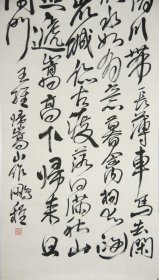 清川帶長薄車馬去閑
閑流水如有意暮禽相與還
荒城臨古渡落日滿秋山
迢遞嵩高下歸來且
閉關
王維歸嵩山作 鵬程